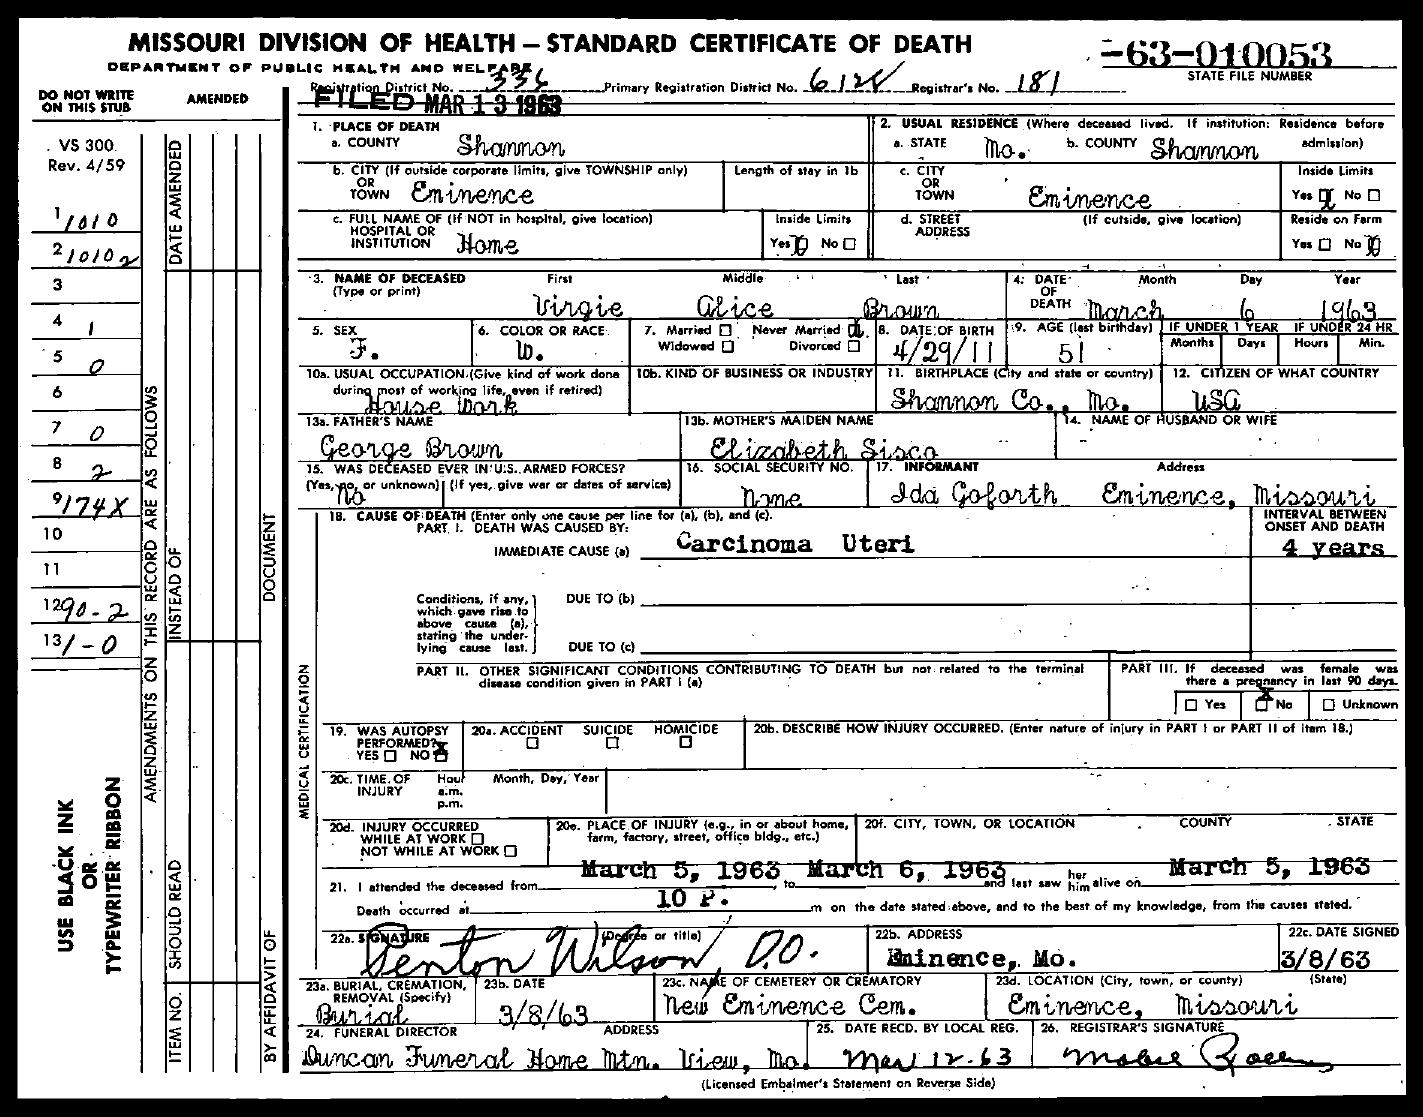 MISSOURI DIVISION OF HEALTH — STANDARD CERTIFICATE OF DEATH
DEPARTMENT OF PUBLIC HEALTH AND WELFARE
-63-010053
STATE FILE NUMBER
Registration District No. 336 Primary Registration District No. Registrar's No. 181
FILED MAR 13 1963
DO NOT WRITE
ON THIS STUB
AMENDED
VS 300
Rev. 4/59
1 1010
2 1010 2
3
4 1
5 0
6
7 0
8 2
9 174X
10
11
12 90-2
13 1-0
USE BLACK INK
OR
TYPEWRITER RIBBON
AMENDMENTS ON THIS RECORD ARE AS FOLLOWS
DATE AMENDED
INSTEAD OF
SHOULD READ
ITEM NO.
DOCUMENT
BY AFFIDAVIT OF
MEDICAL CERTIFICATION
1. PLACE OF DEATH
a. COUNTY Shannon
b. CITY (If outside corporate limits, give TOWNSHIP only)
OR
TOWN Eminence
Length of stay in 1b
c. FULL NAME OF (If NOT in hospital, give location)
HOSPITAL OR
INSTITUTION Home
Inside Limits
Yes X No
2. USUAL RESIDENCE (Where deceased lived. If institution: Residence before
admission)
a. STATE Mo. b. COUNTY Shannon
c. CITY
OR
TOWN Eminence
Inside Limits
Yes X No
d. STREET
ADDRESS
(If outside, give location)
Reside on Farm
Yes No X
3. NAME OF DECEASED
(Type or print)
First Middle Last
Virgie Alice Brown
4. DATE
OF
DEATH
Month Day Year
March 6 1963
5. SEX
F.
6. COLOR OR RACE
W.
7. Married Never Married X
Widowed Divorced
8. DATE OF BIRTH
4/29/11
9. AGE (last birthday)
51
IF UNDER 1 YEAR IF UNDER 24 HR
Months Days Hours Min.
10a. USUAL OCCUPATION (Give kind of work done
during most of working life, even if retired)
House Work
10b. KIND OF BUSINESS OR INDUSTRY
11. BIRTHPLACE (City and state or country)
Shannon Co., Mo.
12. CITIZEN OF WHAT COUNTRY
USA
13a. FATHER'S NAME
George Brown
13b. MOTHER'S MAIDEN NAME
Elizabeth Sisco
14. NAME OF HUSBAND OR WIFE
15. WAS DECEASED EVER IN U.S. ARMED FORCES?
(Yes, no, or unknown) (If yes, give war or dates of service)
No
16. SOCIAL SECURITY NO.
None
17. INFORMANT Address
Ida Goforth Eminence, Missouri
18. CAUSE OF DEATH (Enter only one cause per line for (a), (b), and (c).
PART I. DEATH WAS CAUSED BY:
IMMEDIATE CAUSE (a) Carcinoma Uteri
INTERVAL BETWEEN
ONSET AND DEATH
4 years
Conditions, if any,
which gave rise to
above cause (a),
stating the under-
lying cause last.
DUE TO (b)
DUE TO (c)
PART II. OTHER SIGNIFICANT CONDITIONS CONTRIBUTING TO DEATH but not related to the terminal
disease condition given in PART I (a)
PART III. If deceased was female was
there a pregnancy in last 90 days.
Yes X No Unknown
19. WAS AUTOPSY
PERFORMED?
YES NO X
20a. ACCIDENT SUICIDE HOMICIDE
20b. DESCRIBE HOW INJURY OCCURRED. (Enter nature of injury in PART I or PART II of item 18.)
20c. TIME OF
INJURY
Hour
a.m.
p.m.
Month, Day, Year
20d. INJURY OCCURRED
WHILE AT WORK
NOT WHILE AT WORK
20e. PLACE OF INJURY (e.g., in or about home,
farm, factory, street, office bldg., etc.)
20f. CITY, TOWN, OR LOCATION COUNTY STATE
21. I attended the deceased from March 5, 1963, to March 6, 1963 and last saw her him alive on March 5, 1963
Death occurred at 10 P. m on the date stated above, and to the best of my knowledge, from the causes stated.
22a. SIGNATURE (Degree or title)
Wilson, D.O.
22b. ADDRESS
Eminence, Mo.
22c. DATE SIGNED
3/8/63
23a. BURIAL, CREMATION,
REMOVAL (Specify)
Burial
23b. DATE
3/8/63
23c. NAME OF CEMETERY OR CREMATORY
New Eminence Cem.
23d. LOCATION (City, town, or county) (State)
Eminence, Missouri
24. FUNERAL DIRECTOR ADDRESS
Duncan Funeral Home Mtn. View, Mo.
25. DATE RECD. BY LOCAL REG.
Mar 12-63
26. REGISTRAR'S SIGNATURE
(Licensed Embalmer's Statement on Reverse Side)